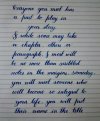 Everyone you meet has
a part to play in
your story.
& while some may take
a chapter, others a
paragraph, & most will
be no more than scribbled
notes in the margins. Someday,
you will meet someone who
will become so integral to
your life, you will put
their name in the title